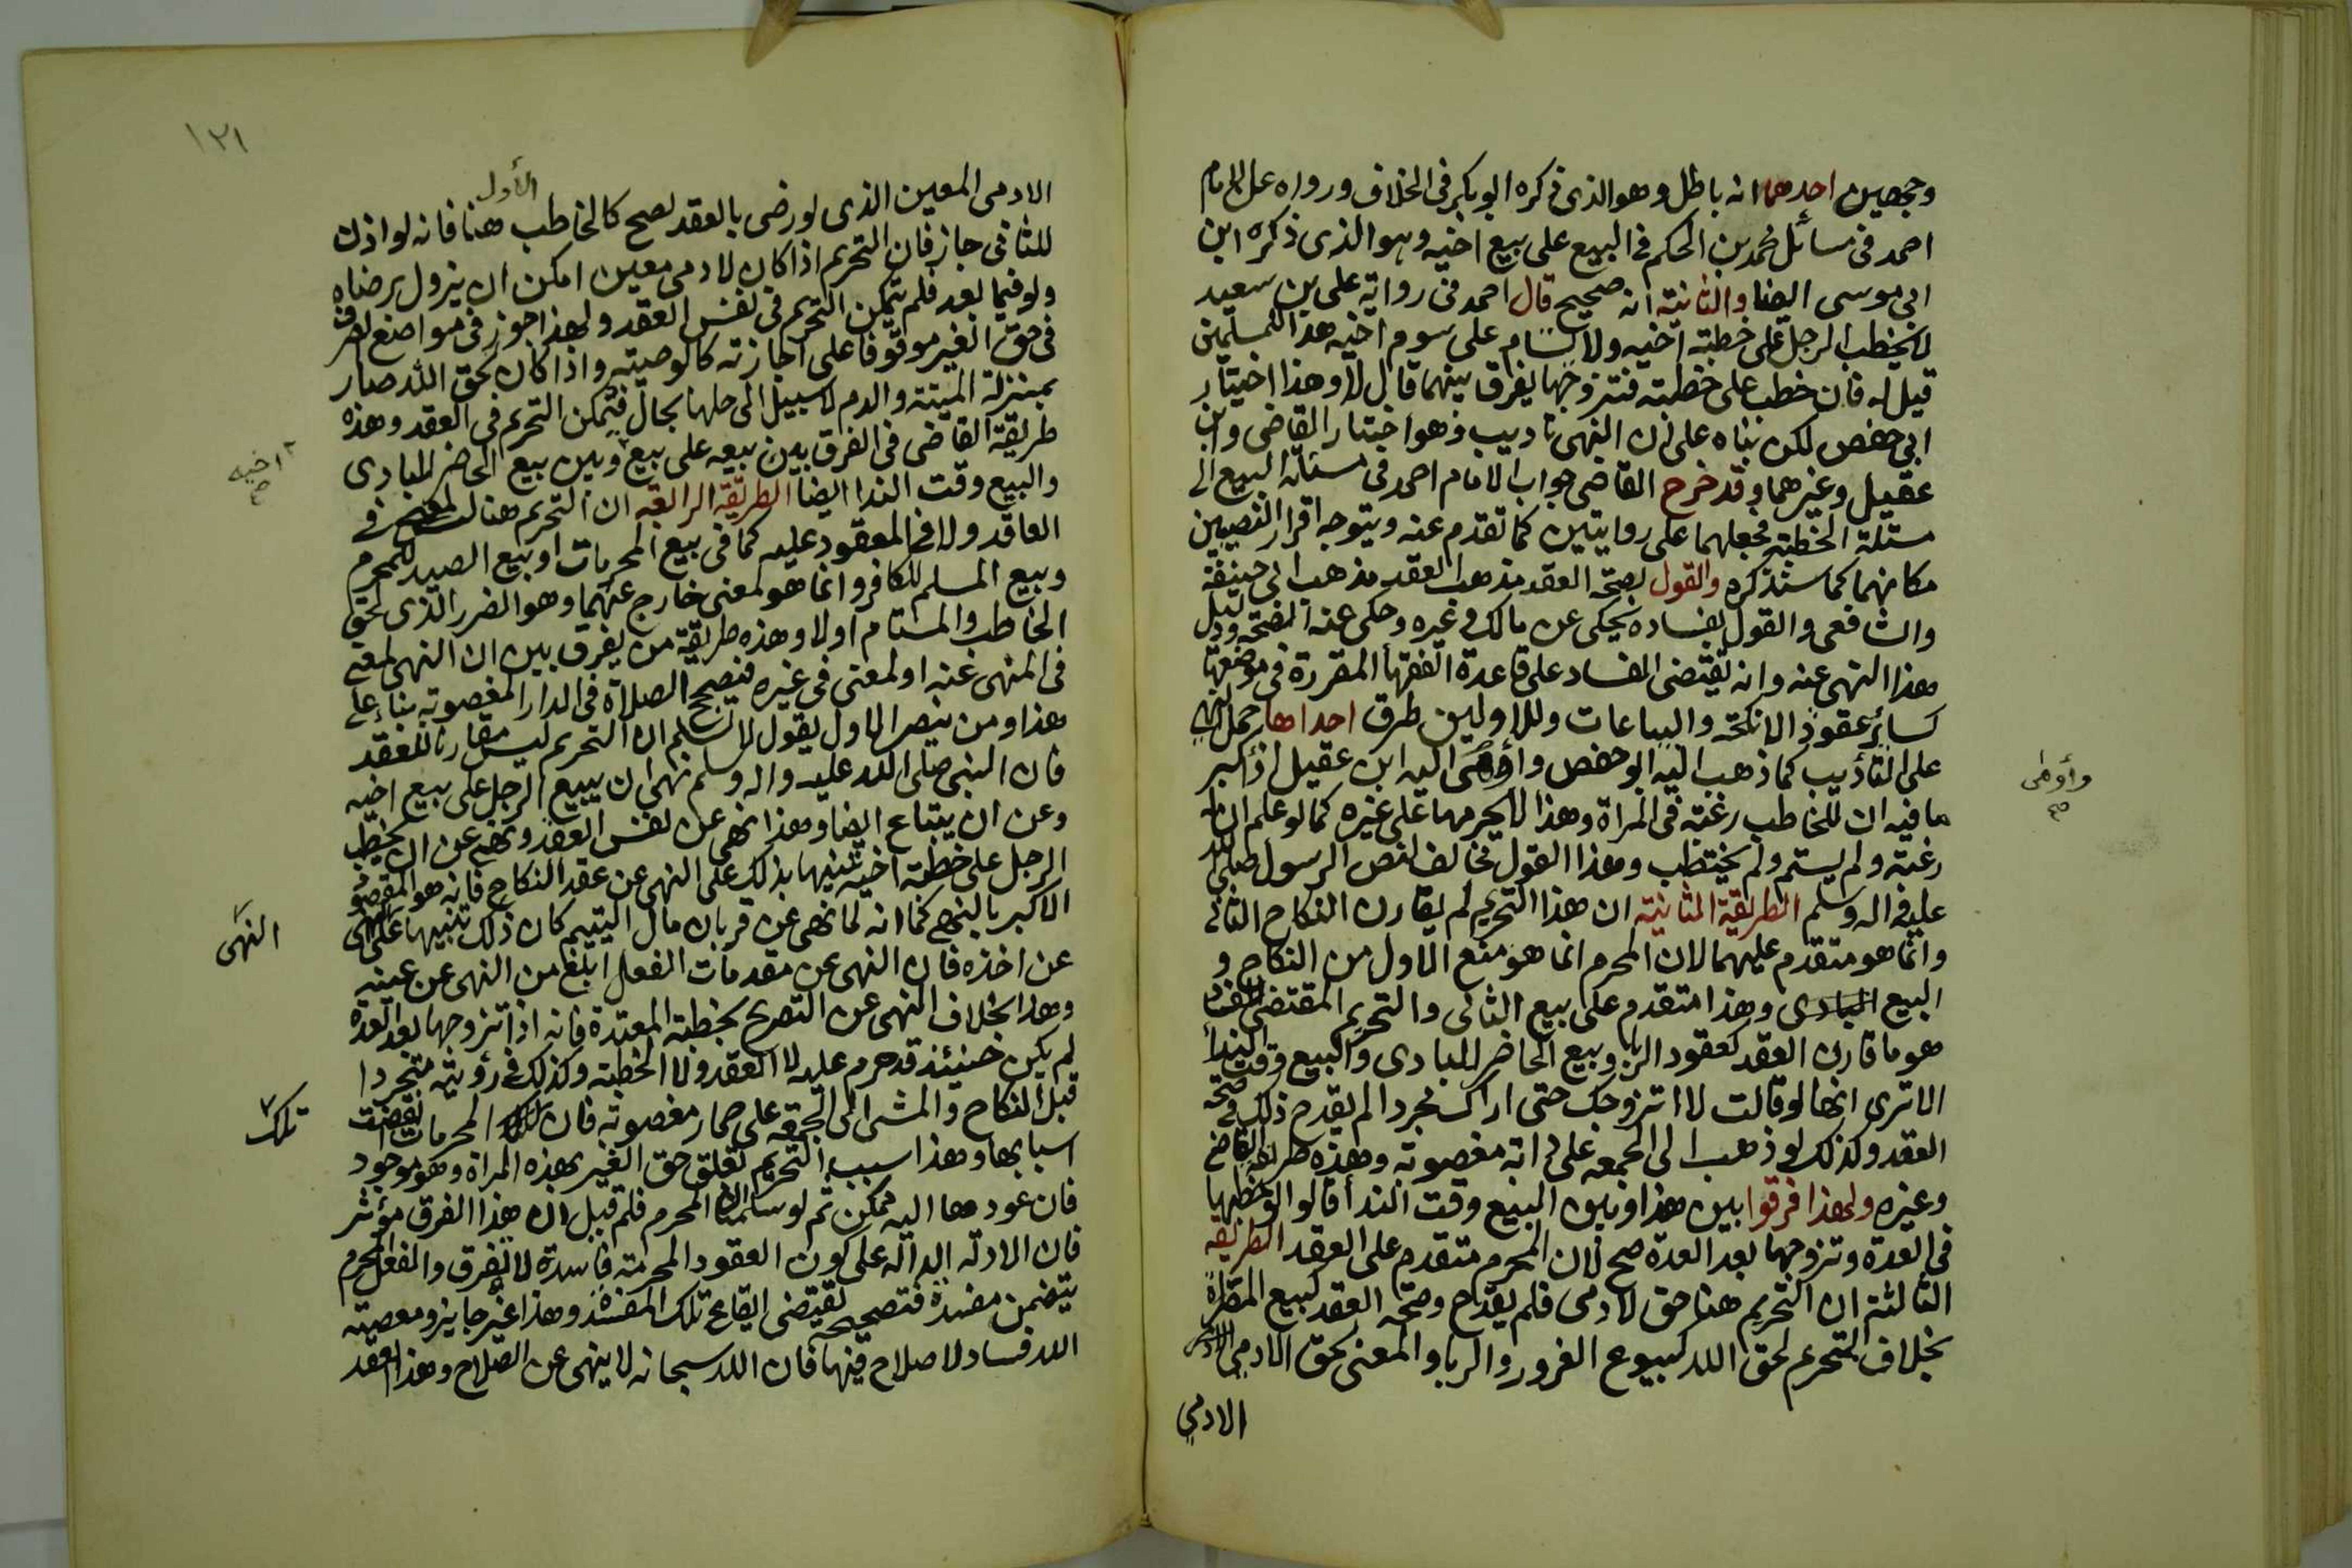 وجهين احدهما انه باطل وهو الذى ذكره ابو بكر فى الخلاف ورواه عن الامام
احمد فى مسائل محمد بن الحكم فى البيع على بيع اخيه وهو الذى ذكره ابن
ابى موسى ايضا والثانية انه صحيح قال احمد فى رواية على بن سعيد
لا يخطب الرجل على خطبة اخيه ولا يستام على سوم اخيه هذا للمسلمين
قيل له فان خطب على خطبته فتزوجها يفرق بينهما قال لا وهذا اختيار
ابى حفص لكن بناه على ان النهى تاديب وهو اختيار القاضى وابن
عقيل وغيرهما وقد خرج القاضى جواب الامام احمد فى مسئلة البيع الى
مسئلة الخطبة فجعلهما على روايتين كما تقدم عنه ويتوجه اقرار النصيين
مكانهما كما سنذكره والقول بصحة العقد مذهب ابى حنيفة
والشافعى والقول بفساده يحكى عن مالك وغيره وحكى عنه الصحة ودليل
هذا النهى عنه وانه يقتضى الفساد على قاعدة الفقهأ المقررة فى موضعها
كسائر عقود الانكحة والبياعات وللاولين طرق احداها حمل النهى
على التأديب كما ذهب اليه ابو حفص وأومى اليه ابن عقيل اذ اكبر
ما فيه ان للخاطب رغبة فى المراة وهذا لا يحرمها على غيره كما لو علم ان له
رغبة ولم يستم ولم يختطب وهذا القول مخالف لنص الرسول صلى الله
عليه واله وسلم الطريقة الثانية ان هذا التحريم لم يقارن النكاح الثانى
وانما هو متقدم عليهما لان المحرم انما هو منع الاول من النكاح و
البيع وهذا متقدم على بيع الثانى والتحريم المقتضى للفساد
هو ما قارن العقد كعقود الربا وبيع الحاضر للبادى والبيع وقت الندأ
الا ترى انها لو قالت لا اتزوجك حتى اراك مجردا لم يقدح ذلك فى صحة
العقد وكذلك لو ذهب الى الجمعه على دابة مغصوبة وهذه طريقة القاضى
وغيره ولهذا فرقوا بين هذا وبين البيع وقت الندأ قالوا لو خطبها
فى العدة وتزوجها بعد العدة صح لان المحرم متقدم على العقد الطريقة
الثالثة ان التحريم هنا حق لادمى فلم يقدح وصحة العقد كبيع المصراة
بخلاف التحريم لحق الله كبيوع الغرور والربا والمعنى لحق الادمى
الادمى
وأومى صح
١٢١
الادمى المعين الذى لو رضى بالعقد لصح كالخاطب الأول هنا فانه لو اذن
للثانى جاز فان التحريم اذا كان لادمى معين امكن ان يزول برضاه
ولو فيما بعد فلم يتمكن التحريم فى نفس العقد ولهذا جوز فى مواضع التصرف
فى حق الغير موقوفا على اجازته كالوصية واذا كان لحق الله صار
بمنزلة الميتة والدم لا سبيل الى حلها بحال فيتمكن التحريم فى العقد وهذه
طريقة القاضى فى الفرق بين بيعه على بيع وبين بيع الحاضر للبادى
والبيع وقت الندا ايضا الطريقة الرابعة ان التحريم هنا ليس لمعنى فى
العاقد ولا فى المعقود عليه كما فى بيع المحرمات او بيع الصيد للمحرم
وبيع المسلم للكافر وانما هو لمعنى خارج عنهما وهو الضرر الذى لحق
الخاطب والمستام اولا وهذه طريقة من يفرق بين ان النهى لمعنى
فى المنهى عنه او لمعنى فى غيره فيصحح الصلاة فى الدار المغصوبة بناء على
هذا ومن ينصر الاول يقول لا نسلم ان التحريم ليس مقارنا للعقد
فان النبى صلى الله عليه واله وسلم نهى ان يبيع الرجل على بيع اخيه
وعن ان يبتاع ايضا وهذا نهى عن نفس العقد ونهى عن ان يخطب
الرجل على خطبة اخيه تنبيها بذلك على النهى عن عقد النكاح فانه هو المقصود
الاكبر بالنهى كما انه لما نهى عن قربان مال اليتيم كان ذلك تنبيها على
عن اخذه فان النهى عن مقدمات الفعل ابلغ من النهى عن عينه
وهذا بخلاف النهى عن التصريح بخطبة المعتدة فانه اذا تزوجها بعد العدة
لم يكن حينئذ قد حرم عليه لا العقد ولا الخطبة وكذلك فى رؤيته متجردا
قبل النكاح والمشى الى الجمعة على حمار مغصوبة فان المحرمات انقضت
اسبابها وهذا سبب التحريم تعلق حق الغير بهذه المراة وهو موجود
فان عودها اليه ممكن ثم لو سلمنا ان المحرم فلم قيل ان هذا الفرق مؤثر
فان الادلة الدالة على كون العقود المحرمة فاسدة لا تفرق والفعل المحرم
يتضمن مفسدة فتصحيحه يقتضى ايقاع تلك المفسدة وهذا غير جايز ومعصية
الله فساد لا صلاح فيها فان الله سبحانه لا ينهى عن الصلاح وهذا العقد
اخيه صح
النهى
تلك